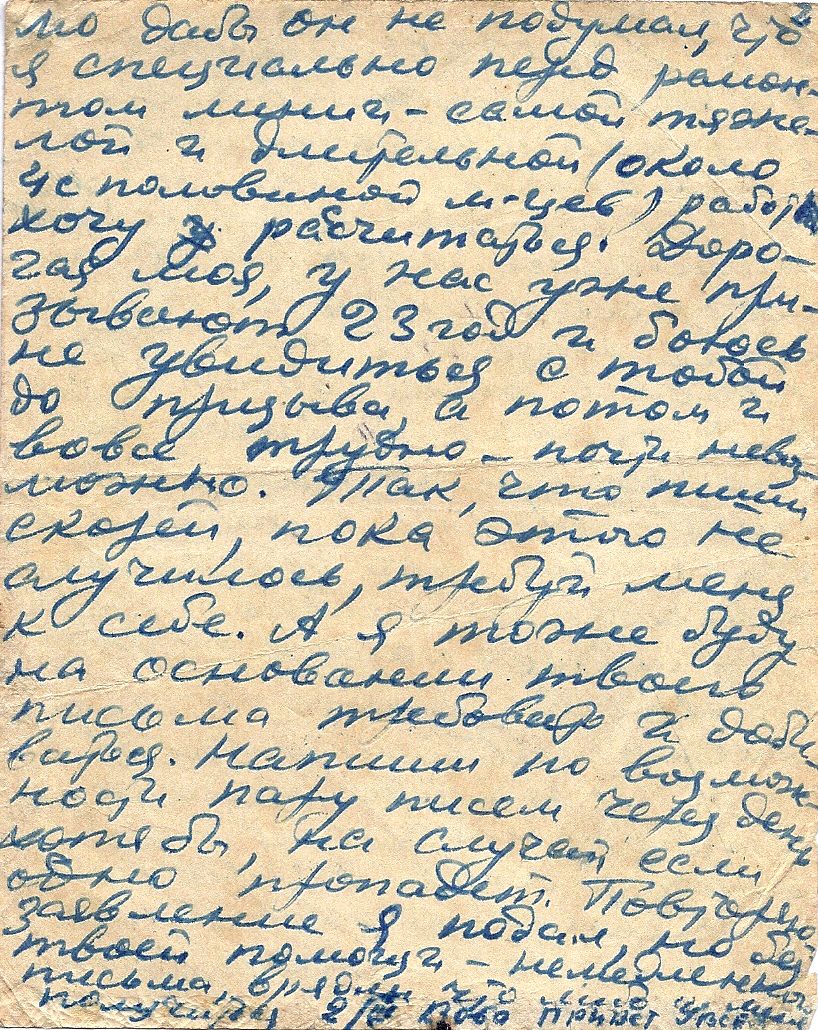 мо дабы он не подумал, что
я специально перед ремон-
том линии - самой тяже-
лой и длительной (около
4 с половиной м-цев) работы
хочу расчитаться. Доро-
гая моя, у нас уже при-
зывают 23 год и боюсь
не увидиться с тобой
до призыва, а потом и
вовсе трудно - почти невоз-
можно. Так, что пиши
скорей, пока этого не
случилось, требуй меня
к себе. А я тоже буду
на основании твоего
письма требовать и доби-
ваться. Напиши по возмож-
ности пару писем через день
хотя бы, на случай если
одно пропадет. Повторяю,
заявление я подал, но без
твоей помощи - немедленного
письма врядли что
получится 2/II Вова Привет